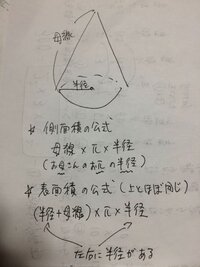 母線
半径
☆ 側面積の公式
母線×π×半径
(お母さんのお兀の半径)
☆ 表面積の公式 (上とほぼ同じ)
(半径+母線)×π×半径
左右に半径がある